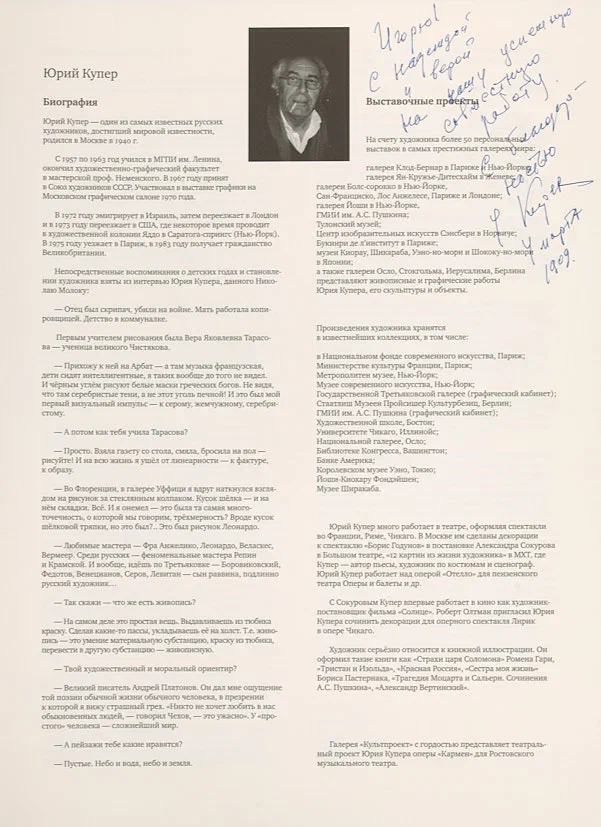 Юрий Купер
Биография
Юрий Купер — один из самых известных русских
художников, достигший мировой известности,
родился в Москве в 1940 г.
С 1957 по 1963 год учился в МГПИ им. Ленина,
окончил художественно-графический факультет
в мастерской проф. Неменского. В 1967 году принят
в Союз художников СССР. Участвовал в выставке графики на
Московском графическом салоне 1970 года.
В 1972 году эмигрирует в Израиль, затем переезжает в Лондон
и в 1973 году переезжает в США, где некоторое время проводит
в художественной колонии Яддо в Саратога-спрингс (Нью-Йорк).
В 1975 году уезжает в Париж, в 1983 году получает гражданство
Великобритании.
Непосредственные воспоминания о детских годах и становле-
нии художника взяты из интервью Юрия Купера, данного Нико-
лаю Молоку:
— Отец был скрипач, убили на войне. Мать работала копи-
ровщицей. Детство в коммуналке.
Первым учителем рисования была Вера Яковлевна Тарасо-
ва — ученица великого Чистякова.
— Прихожу к ней на Арбат — а там музыка французская,
дети сидят интеллигентные, я таких вообще до того не видел.
И чёрным углём рисуют белые маски греческих богов. Не видя,
что там серебристые тени, а не этот уголь печной! И это был мой
первый визуальный импульс — к серому, жемчужному, серебри-
стому.
— А потом как тебя учила Тарасова?
— Просто. Взяла газету со стола, смяла, бросила на пол —
рисуйте! И на всю жизнь я ушёл от линеарности — к фактуре,
к образу.
— Во Флоренции, в галерее Уффици я вдруг наткнулся взгля-
дом на рисунок за стеклянным колпаком. Кусок шёлка — и на
нём складки. Всё. И я онемел — это была та самая много-
точечность, о которой мы говорим, трёхмерность? Вроде кусок
шёлковой тряпки, но это был?.. Это был рисунок Леонардо.
— Любимые мастера — Фра Анжелико, Леонардо, Веласкес,
Вермеер. Среди русских — феноменальные мастера Репин
и Крамской. И вообще, идёшь по Третьяковке — Боровиковский,
Федотов, Венецианов, Серов, Левитан — сын раввина, подлинно
русский художник…
— Так скажи — что же есть живопись?
— На самом деле это простая вещь. Выдавливаешь из тюбика
краску. Сделав какие-то пассы, укладываешь её на холст. Т.е. живо-
пись — это умение материальную субстанцию, краску из тюбика,
перевести в другую субстанцию — живописную.
— Твой художественный и моральный ориентир?
— Великий писатель Андрей Платонов. Он дал мне ощущение
той поэзии обычной жизни обычного человека, в презрении
к которой я вижу страшный грех. «Никто не хочет любить в нас
обыкновенных людей, — говорил Чехов, — это ужасно». У «про-
стого» человека — сложнейший мир.
— А пейзажи тебе какие нравятся?
— Пустые. Небо и вода, небо и земля.
Игорю!
С надеждой
и верой
на нашу успешную
совместную
работу.
Ю Купер
4 марта
1909.
Выставочные проекты
На счету художника более 50 персональных
выставок в самых престижных галереях мира:
галерея Клод-Бернар в Париже и Нью-Йорке,
галерея Ян-Кружье-Дитесхайм в Женеве;
галереи Болс-сорокко в Нью-Йорке,
Сан-Франциско, Лос Анжелесе, Париже и Лондоне;
галерея Йоши в Нью-Йорке,
ГМИИ им. А.С. Пушкина;
Тулонский музей;
Центр изобразительных искусств Сэнсбери в Норвиче;
Букинири де л'институт в Париже;
музеи Киорау, Шикараба, Уэно-но-мори и Шококу-но-мори
в Японии;
а также галереи Осло, Стокгольма, Иерусалима, Берлина
представляют живописные и графические работы
Юрия Купера, его скульптуры и объекты.
Произведения художника хранятся
в известнейших коллекциях, в том числе:
в Национальном фонде современного искусства, Париж;
Министерстве культуры Франции, Париж;
Метрополитен музее, Нью-Йорк;
Музее современного искусства, Нью-Йорк;
Государственной Третьяковской галерее (графический кабинет);
Стаатлиш Музеен Пройсишер Культурбезиц, Берлин;
ГМИИ им. А.С. Пушкина (графический кабинет);
Художественной школе, Бостон;
Университете Чикаго, Иллинойс;
Национальной галерее, Осло;
Библиотеке Конгресса, Вашингтон;
Банке Америка;
Королевском музее Уэно, Токио;
Йоши-Киохару Фондэйшен;
Музее Ширакаба.
Юрий Купер много работает в театре, оформляя спектакли
во Франции, Риме, Чикаго. В Москве им сделаны декорации
к спектаклю «Борис Годунов» в постановке Александра Сокурова
в Большом театре, «12 картин из жизни художника» в МХТ, где
Купер — автор пьесы, художник по костюмам и сценограф.
Юрий Купер работает над оперой «Отелло» для пензенского
театра Оперы и балеты и др.
С Сокуровым Купер впервые работает в кино как художник-
постановщик фильма «Солнце». Роберт Олтман пригласил Юрия
Купера сочинить декорации для оперного спектакля Лирик
в опере Чикаго.
Художник серьёзно относится к книжной иллюстрации. Он
оформил такие книги как «Страхи царя Соломона» Ромена Гари,
«Тристан и Изольда», «Красная Россия», «Сестра моя жизнь»
Бориса Пастернака, «Трагедия Моцарта и Сальери. Сочинения
А.С. Пушкина», «Александр Вертинский».
Галерея «Культпроект» с гордостью представляет театраль-
ный проект Юрия Купера оперы «Кармен» для Ростовского
музыкального театра.